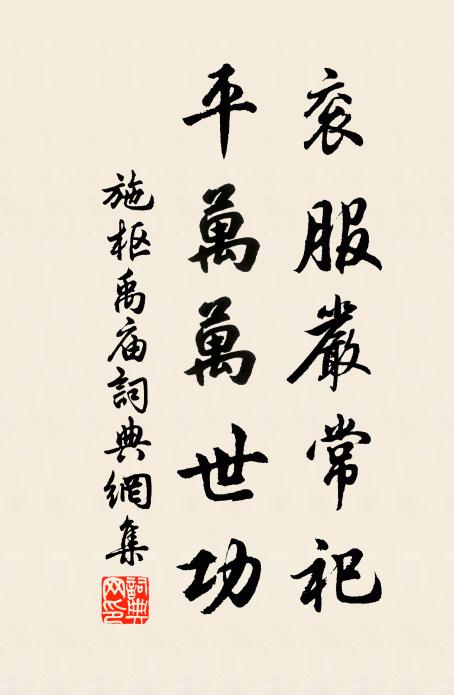 衮服嚴常祀
平萬萬世功
施枢禹庙詞典網集
詞典網印